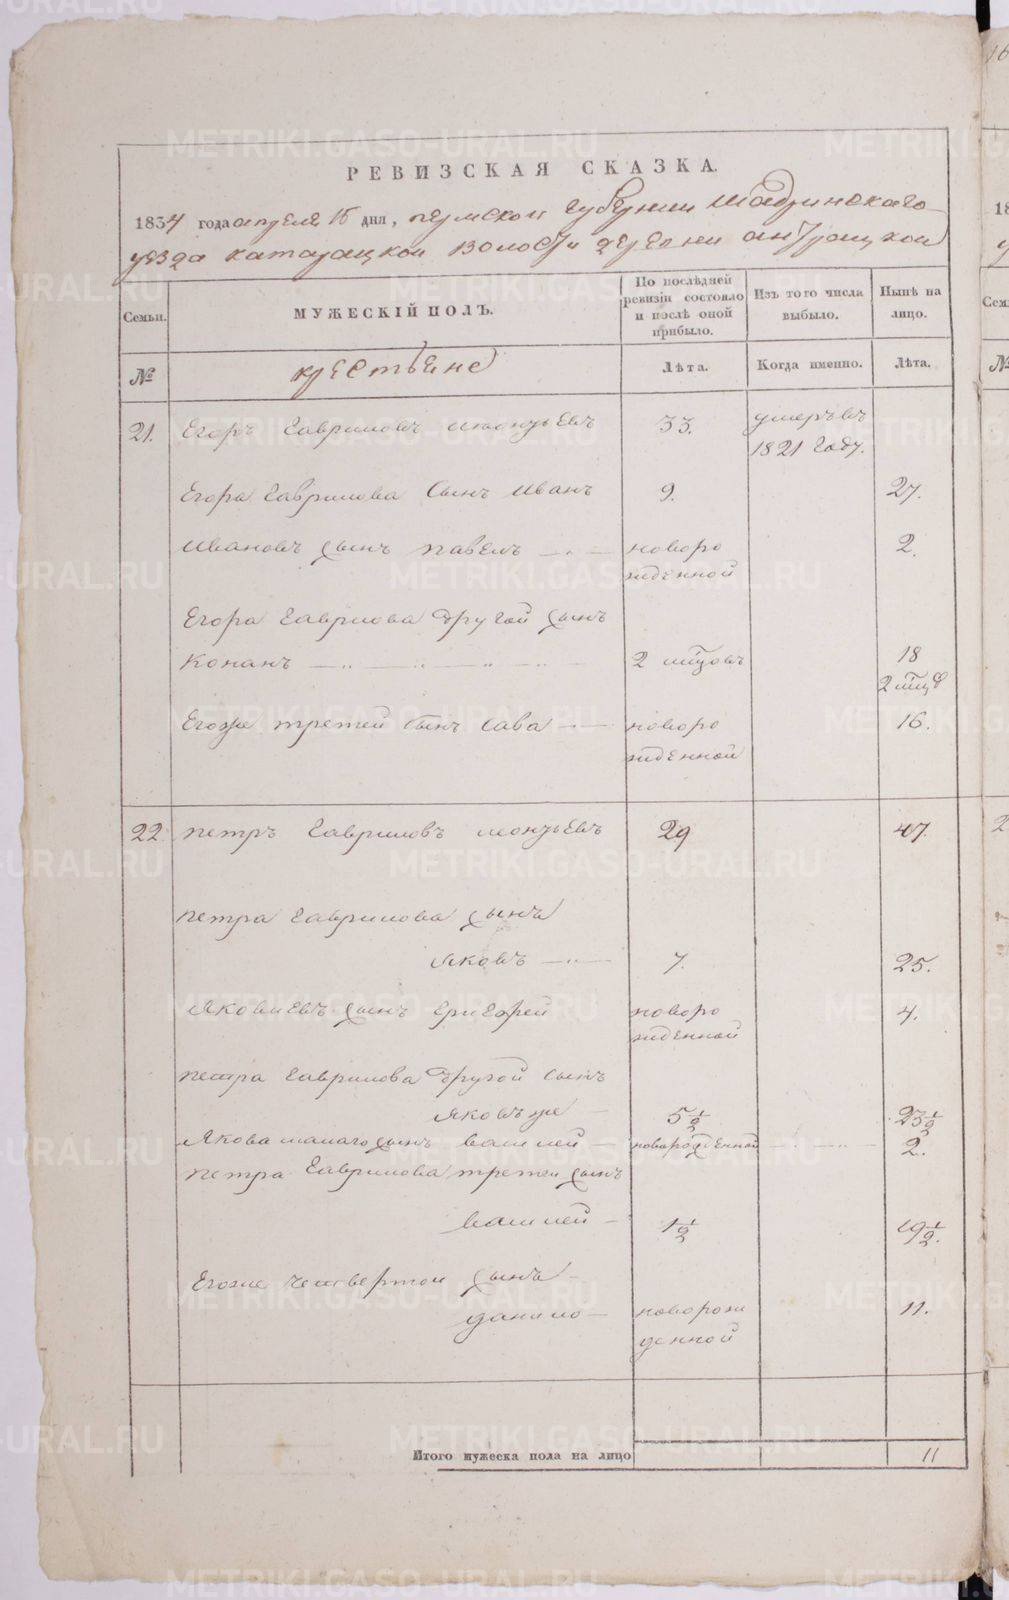 РЕВИЗСКАЯ СКАЗКА.
1834 года апреля 15 дня, пермской губернии Шадринскаго
уезда катайцкой волости деревни
Семьи.
МУЖЕСКІЙ ПОЛЪ.
По послѣдней ревизіи состояло и послѣ оной прибыло.
Изъ того числа выбыло.
Нынѣ на лицо.
№
крестьяне
Лѣта.
Когда именно.
Лѣта.
21. Егоръ Гавриловъ 33. умеръ въ
1821 году.
Егора Гаврилова сынъ Иванъ 9. 27.
Ивановъ сынъ павелъ новоро 2.
жденной
Егора Гаврилова другой сынъ
Конанъ 2 мцовъ 18
2 мцъ
Егоже третей сынъ Сава новоро 16.
жденной
22 петръ Гавриловъ 29 47.
петра Гаврилова сынъ
Яковъ 7. 25.
Яковлевъ сынъ григорей новоро 4.
жденной
петра Гаврилова другой сынъ
Яковъ же 5 1/2 23 1/2
Якова малаго сынъ василей новорожденной 2.
петра Гаврилова третей сынъ
василей 1 1/2 19 1/2.
Егоже четвертой сынъ
данило новорож 11.
денной
Итого мужеска пола на лицо 11
METRIKI.GASO-URAL.RU